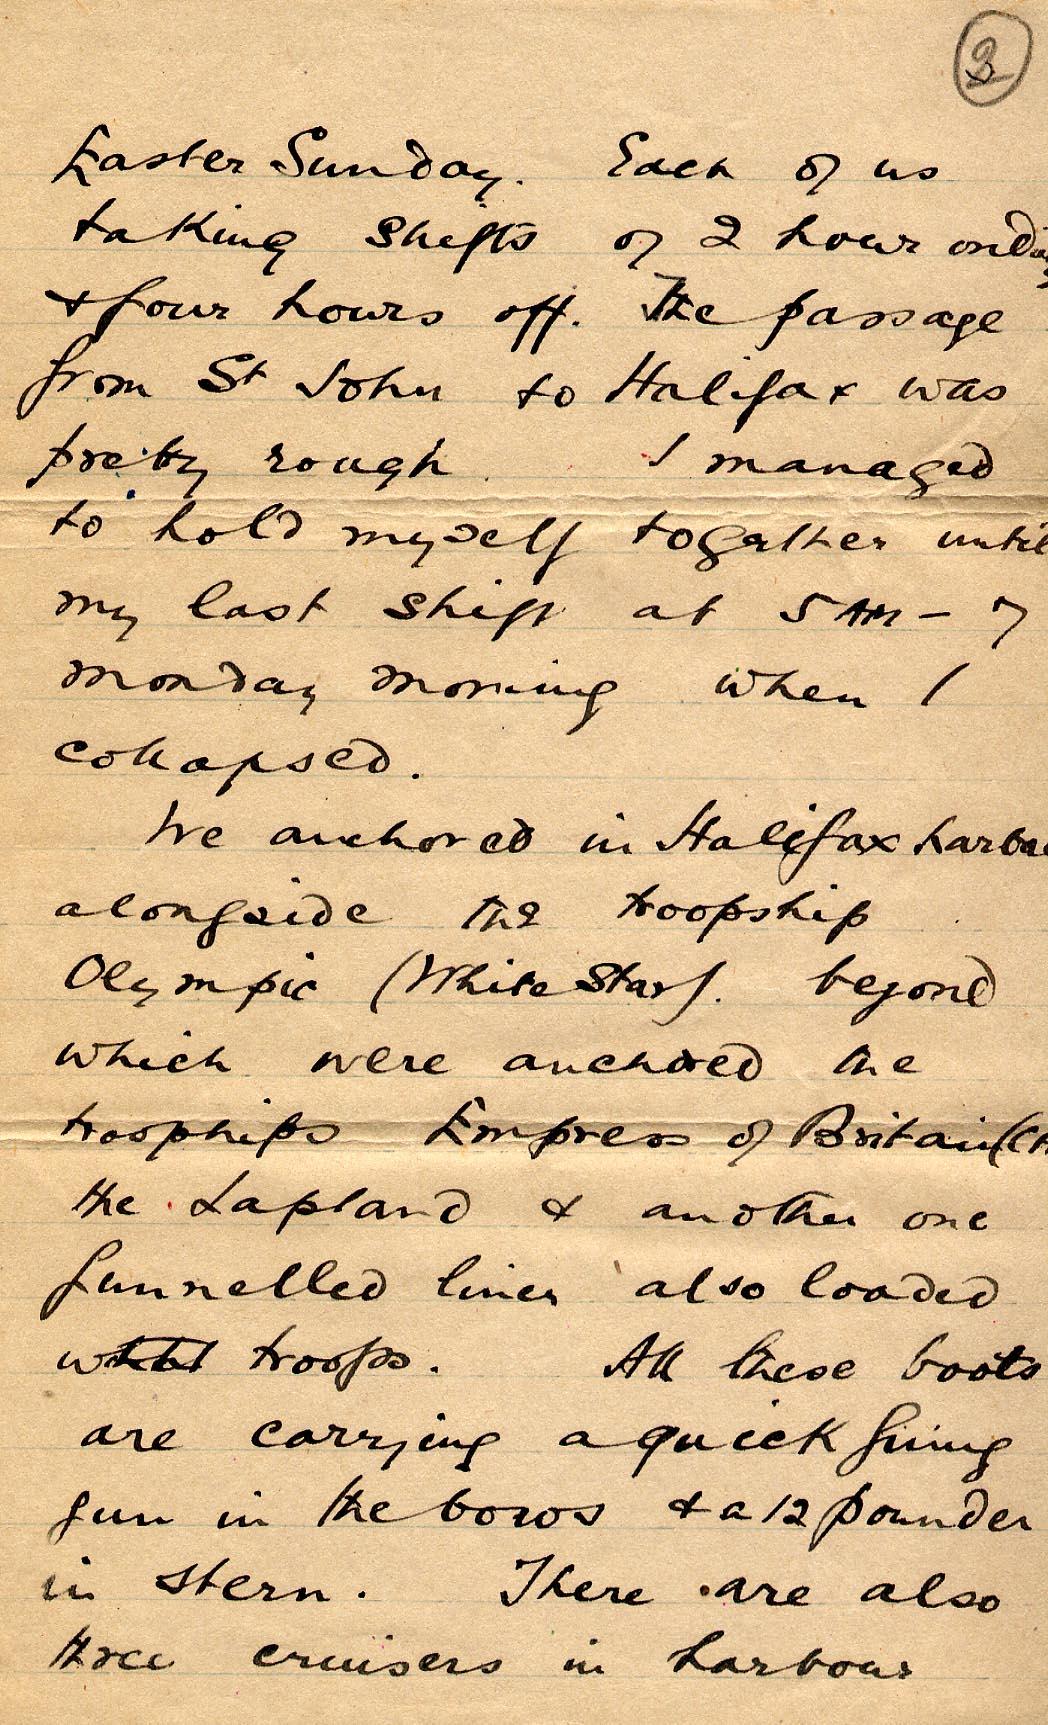 3
Easter Sunday. Each of us
taking shifts of 2 hour on duty
& four hours off. The passage
from St John to Halifax was
pretty rough. I managed
to hold myself together until
my last shift at 5 AM - 7
monday morning when I
collapsed.
We anchored in Halifax harbou
alongside the troopship
Olympic (White Star). beyond
which were anchored the
troopships Empress of Britain (
the Lapland & another one
funnelled liner also loaded
with troops. All these boats
are carrying a quick firing
gun in the bows & a 12 pounder
in stern. There are also
three cruisers in harbour